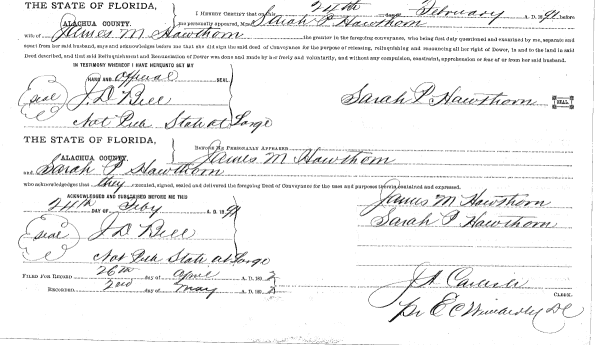 THE STATE OF FLORIDA,
ALACHUA COUNTY.
I HEREBY CERTIFY that on this 24th day of February A. D. 1891 before
me personally appeared, Mrs. Sarah P Hawthorn
wife of James M Hawthorn the grantor in the foregoing conveyance, who being first duly questioned and examined by me, separate and
apart from her said husband, says and acknowledges before me that she did sign the said deed of Conveyance for the purpose of releasing, relinquishing and renouncing all her right of Dower, in and to the land in said
Deed described, and that said Relinquishment and Renunciation of Dower was done and made by her freely and voluntarily, and without any compulsion, constraint, apprehension or fear of or from her said husband.
IN TESTIMONY WHEREOF I HAVE HEREUNTO SET MY
HAND AND official SEAL
seal J. D Bell Sarah P Hawthorn SEAL.
Not Pub State at Largo
THE STATE OF FLORIDA,
ALACHUA COUNTY.
BEFORE ME PERSONALLY APPEARED James M Hawthorn
and Sarah P Hawthorn
who acknowledges that they executed, signed, sealed and delivered the foregoing Deed of Conveyance for the uses and purposes therein contained and expressed.
ACKNOWLEDGED AND SUBSCRIBED BEFORE ME THIS
24th DAY OF Feby A. D. 1891
James M Hawthorn
Sarah P Hawthorn
seal J. D Bell
Not Pub State at Largo
FILED FOR RECORD 26th day of April A. D. 1892
RECORDED 2nd day of May A. D. 1892
J A Carlisle
CLERK.
E C